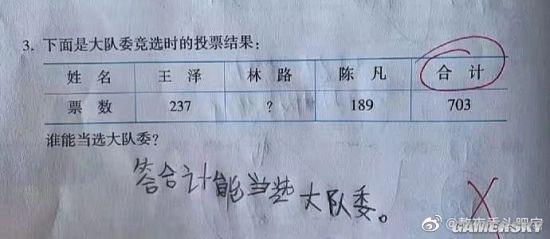 3. 下面是大队委竞选时的投票结果：
姓 名 王 泽 林 路 陈 凡 合 计
票 数 237 ? 189 703
谁能当选大队委？
答合计能当选大队委。
@敖夜香头肥宅
GAMERSKY